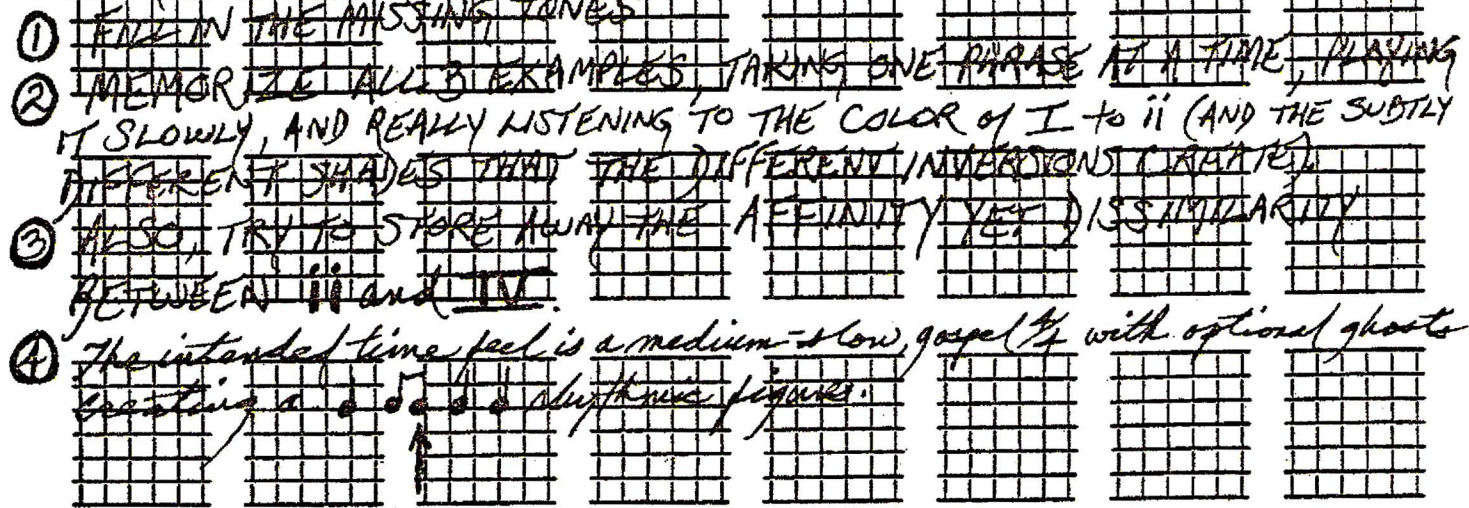 ① FILL IN THE MISSING TONES
② MEMORIZE ALL 3 EXAMPLES, TAKING ONE PHRASE AT A TIME, PLAYING
IT SLOWLY, AND REALLY LISTENING TO THE COLOR of I to ii (AND THE SUBTLY
DIFFERENT SHADES THAT THE DIFFERENT INVERSIONS CREATE).
③ ALSO, TRY TO STORE AWAY THE AFFINITY YET DISSIMILARITY
BETWEEN ii and IV.
④ The intended time feel is a medium-slow, gospel 4/4 with optional ghosts
creating a ♩ ♫ ♩ ♩ rhythmic figure.